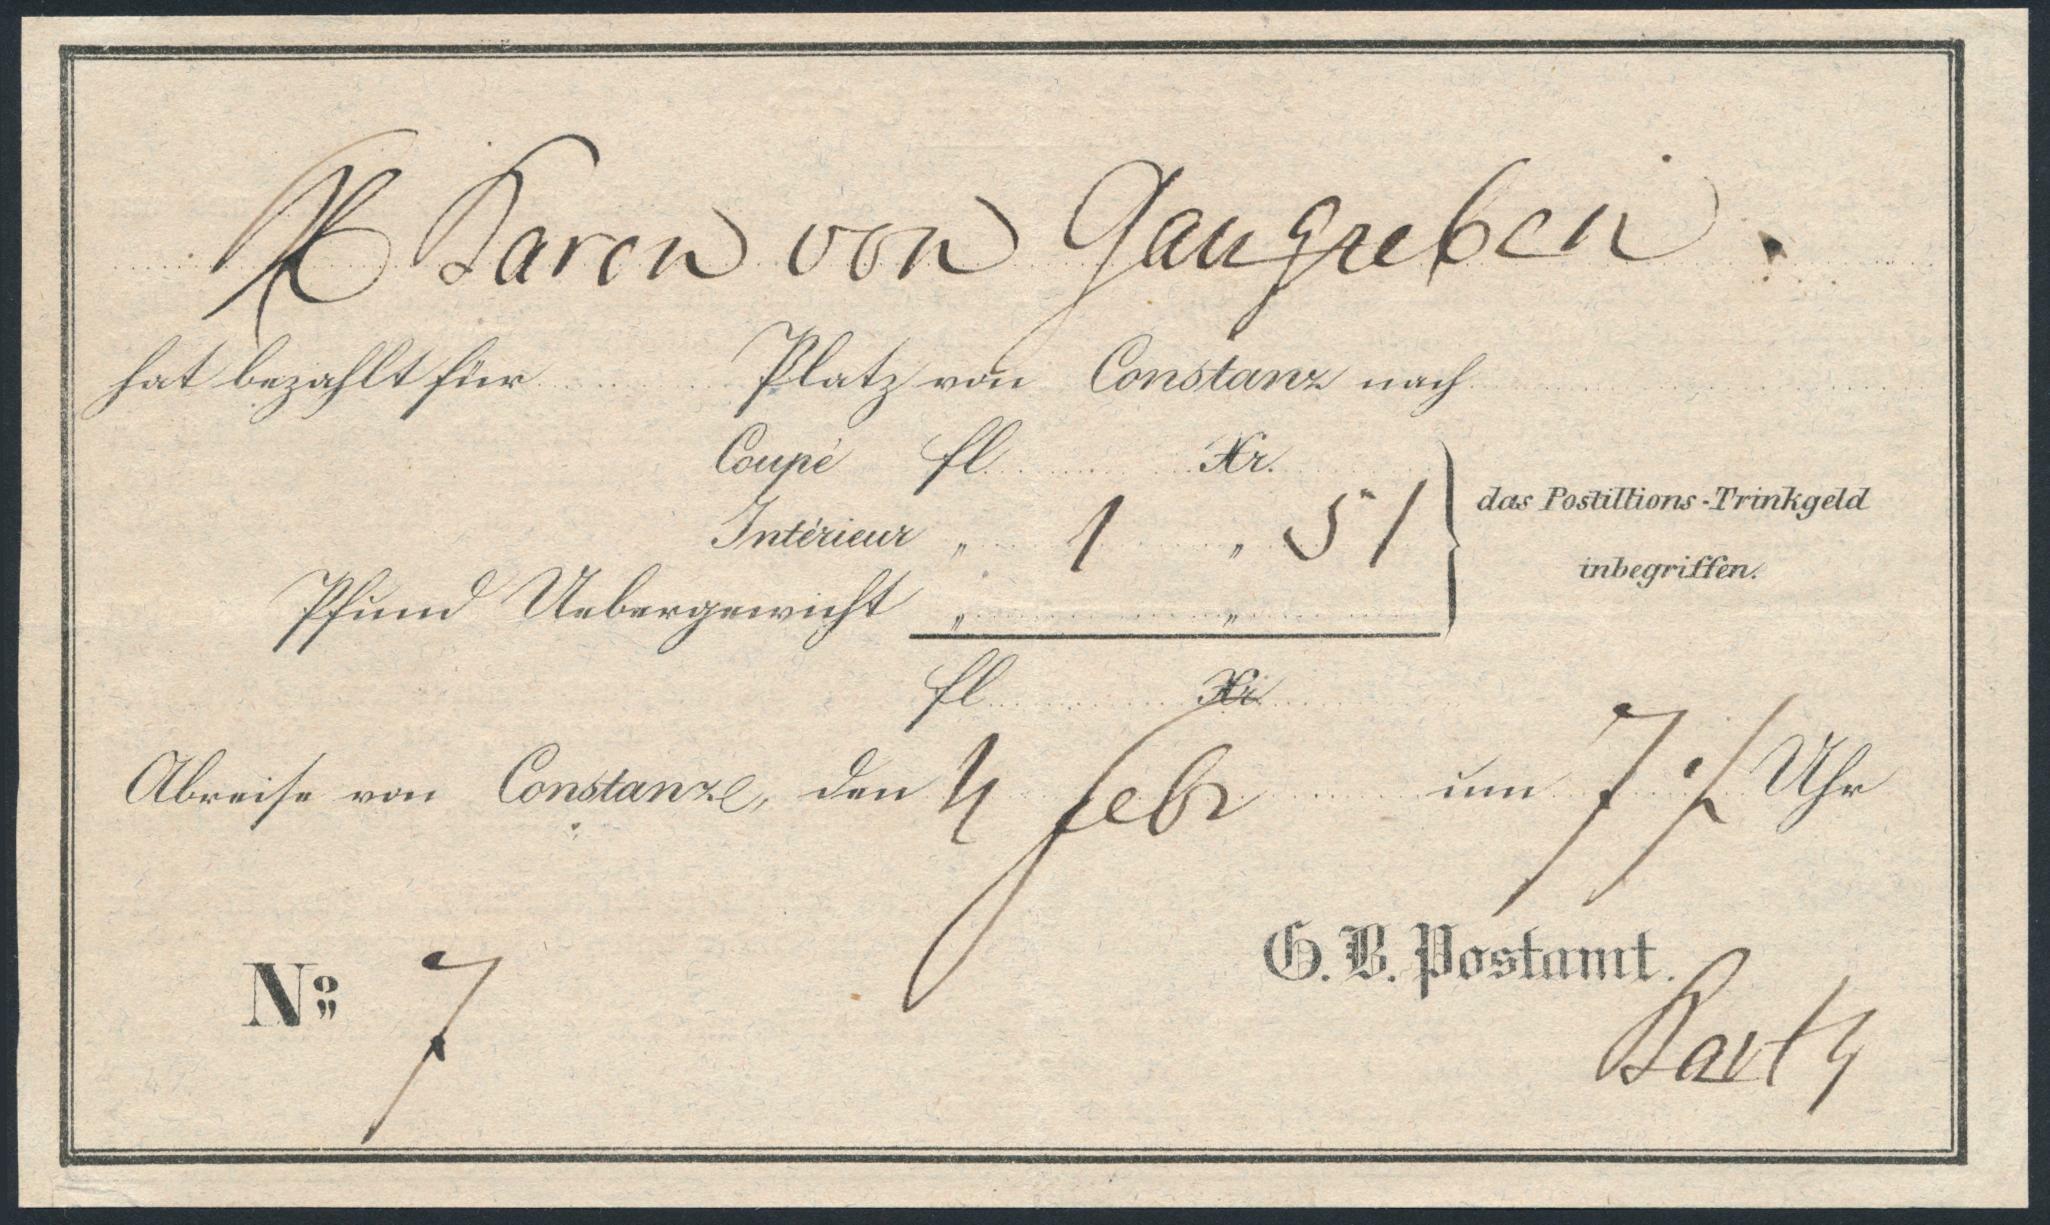 H Baron von Gaugreben.
hat bezahlt für Platz von Constanz nach
Coupé fl Xr.
Intérieur „ 1 „ 51
das Postillions-Trinkgeld
inbegriffen.
Pfund Uebergewicht „ „
fl Xr
Abreise von Constanz, den 4 Febr um 7 Uhr
G. B. Postamt.
No 7